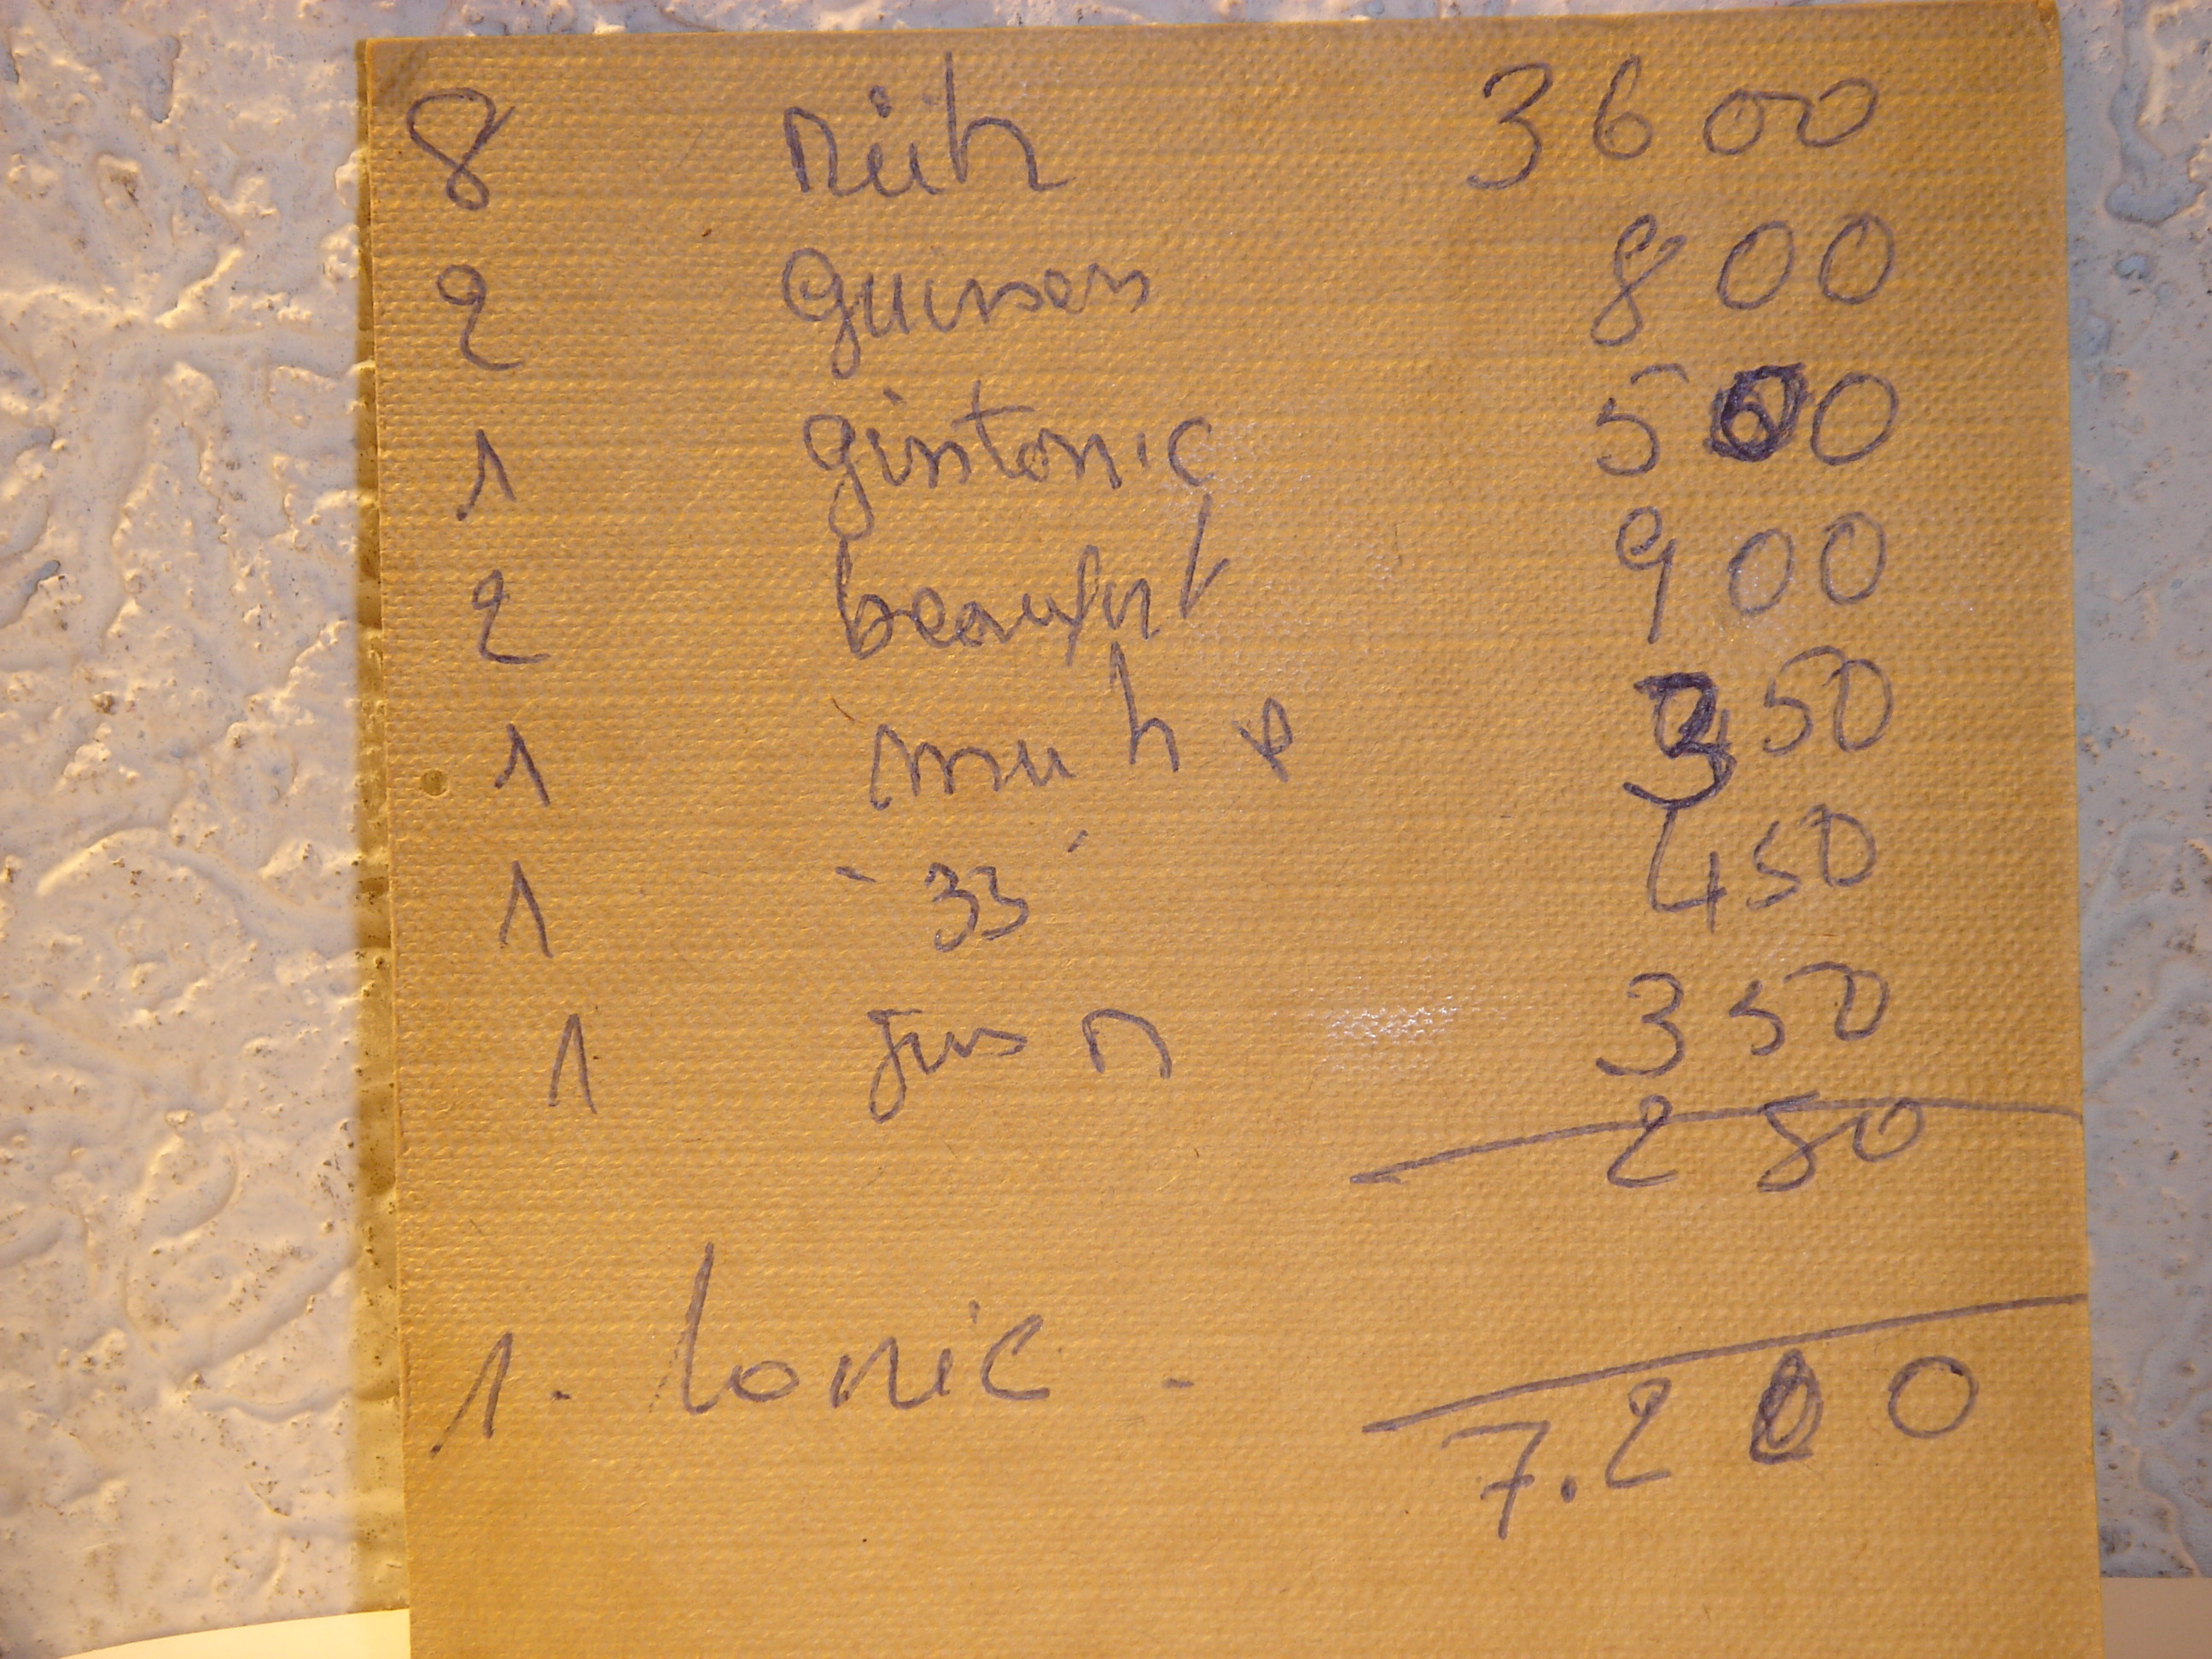 8 3600
2 guinsers 800
1 gintonic 500
2 beaufort 900
1 350
1 "33" 450
1 jus n 350
250
1. tonic - 7.200